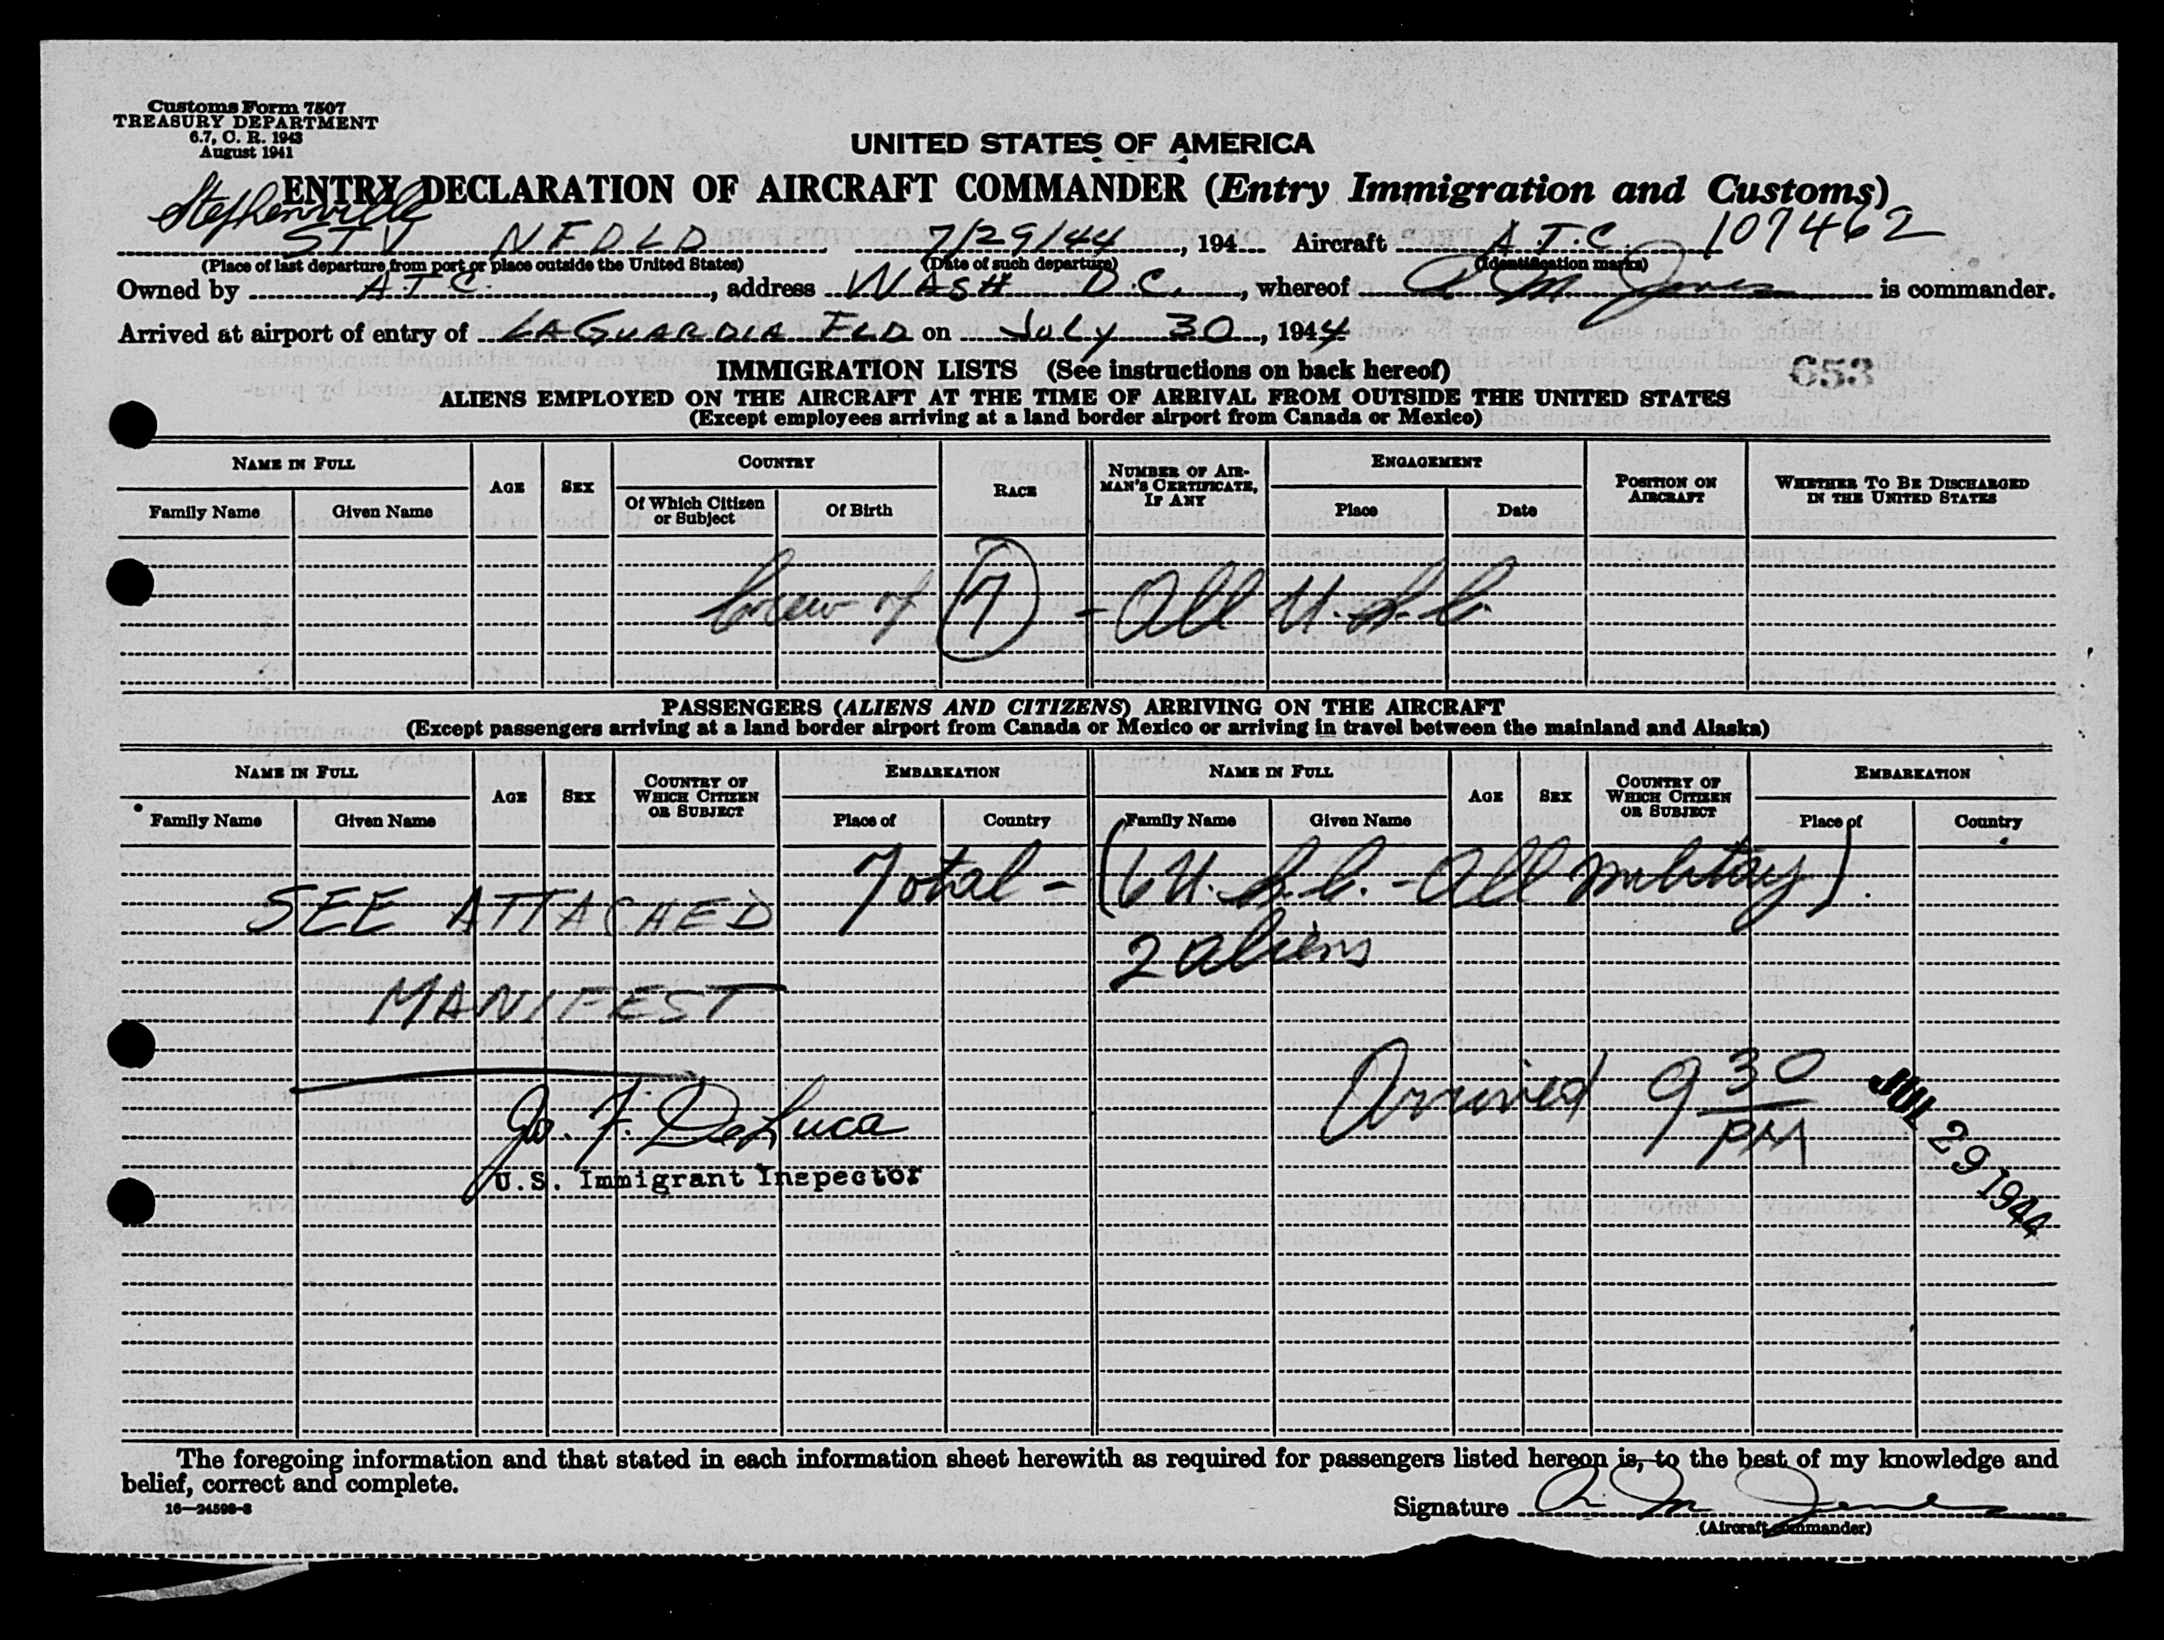 Customs Form 7507
TREASURY DEPARTMENT
6.7, C. R. 1943
August 1941
UNITED STATES OF AMERICA
ENTRY DECLARATION OF AIRCRAFT COMMANDER (Entry Immigration and Customs)
Stephenville
STV NFDLD 7/29/44, 194 Aircraft A.T.C. 107462
(Place of last departure from port or place outside the United States) (Date of such departure) (Identification marks)
Owned by A.T.C., address WASH D.C., whereof A M Jones is commander.
Arrived at airport of entry of LAGUARDIA FLD on July 30, 1944
IMMIGRATION LISTS (See instructions on back hereof)
653
ALIENS EMPLOYED ON THE AIRCRAFT AT THE TIME OF ARRIVAL FROM OUTSIDE THE UNITED STATES
(Except employees arriving at a land border airport from Canada or Mexico)
NAME IN FULL AGE SEX COUNTRY RACE NUMBER OF AIRMAN'S CERTIFICATE, IF ANY ENGAGEMENT POSITION ON AIRCRAFT WHETHER TO BE DISCHARGED IN THE UNITED STATES
Family Name Given Name Of Which Citizen or Subject Of Birth Place Date
Crew of 7 - All U.S.C.
PASSENGERS (ALIENS AND CITIZENS) ARRIVING ON THE AIRCRAFT
(Except passengers arriving at a land border airport from Canada or Mexico or arriving in travel between the mainland and Alaska)
NAME IN FULL AGE SEX COUNTRY OF WHICH CITIZEN OR SUBJECT EMBARKATION NAME IN FULL AGE SEX COUNTRY OF WHICH CITIZEN OR SUBJECT EMBARKATION
Family Name Given Name Place of Country Family Name Given Name Place of Country
SEE ATTACHED Total - (6 U.S.C. - All Military).
2 aliens
MANIFEST
Arrived 9 30 PM
JUL 29 1944
Jo. F. DeLuca
U.S. Immigrant Inspector
The foregoing information and that stated in each information sheet herewith as required for passengers listed hereon is, to the best of my knowledge and
belief, correct and complete.
16—24598-3
Signature A M Jones
(Aircraft commander)